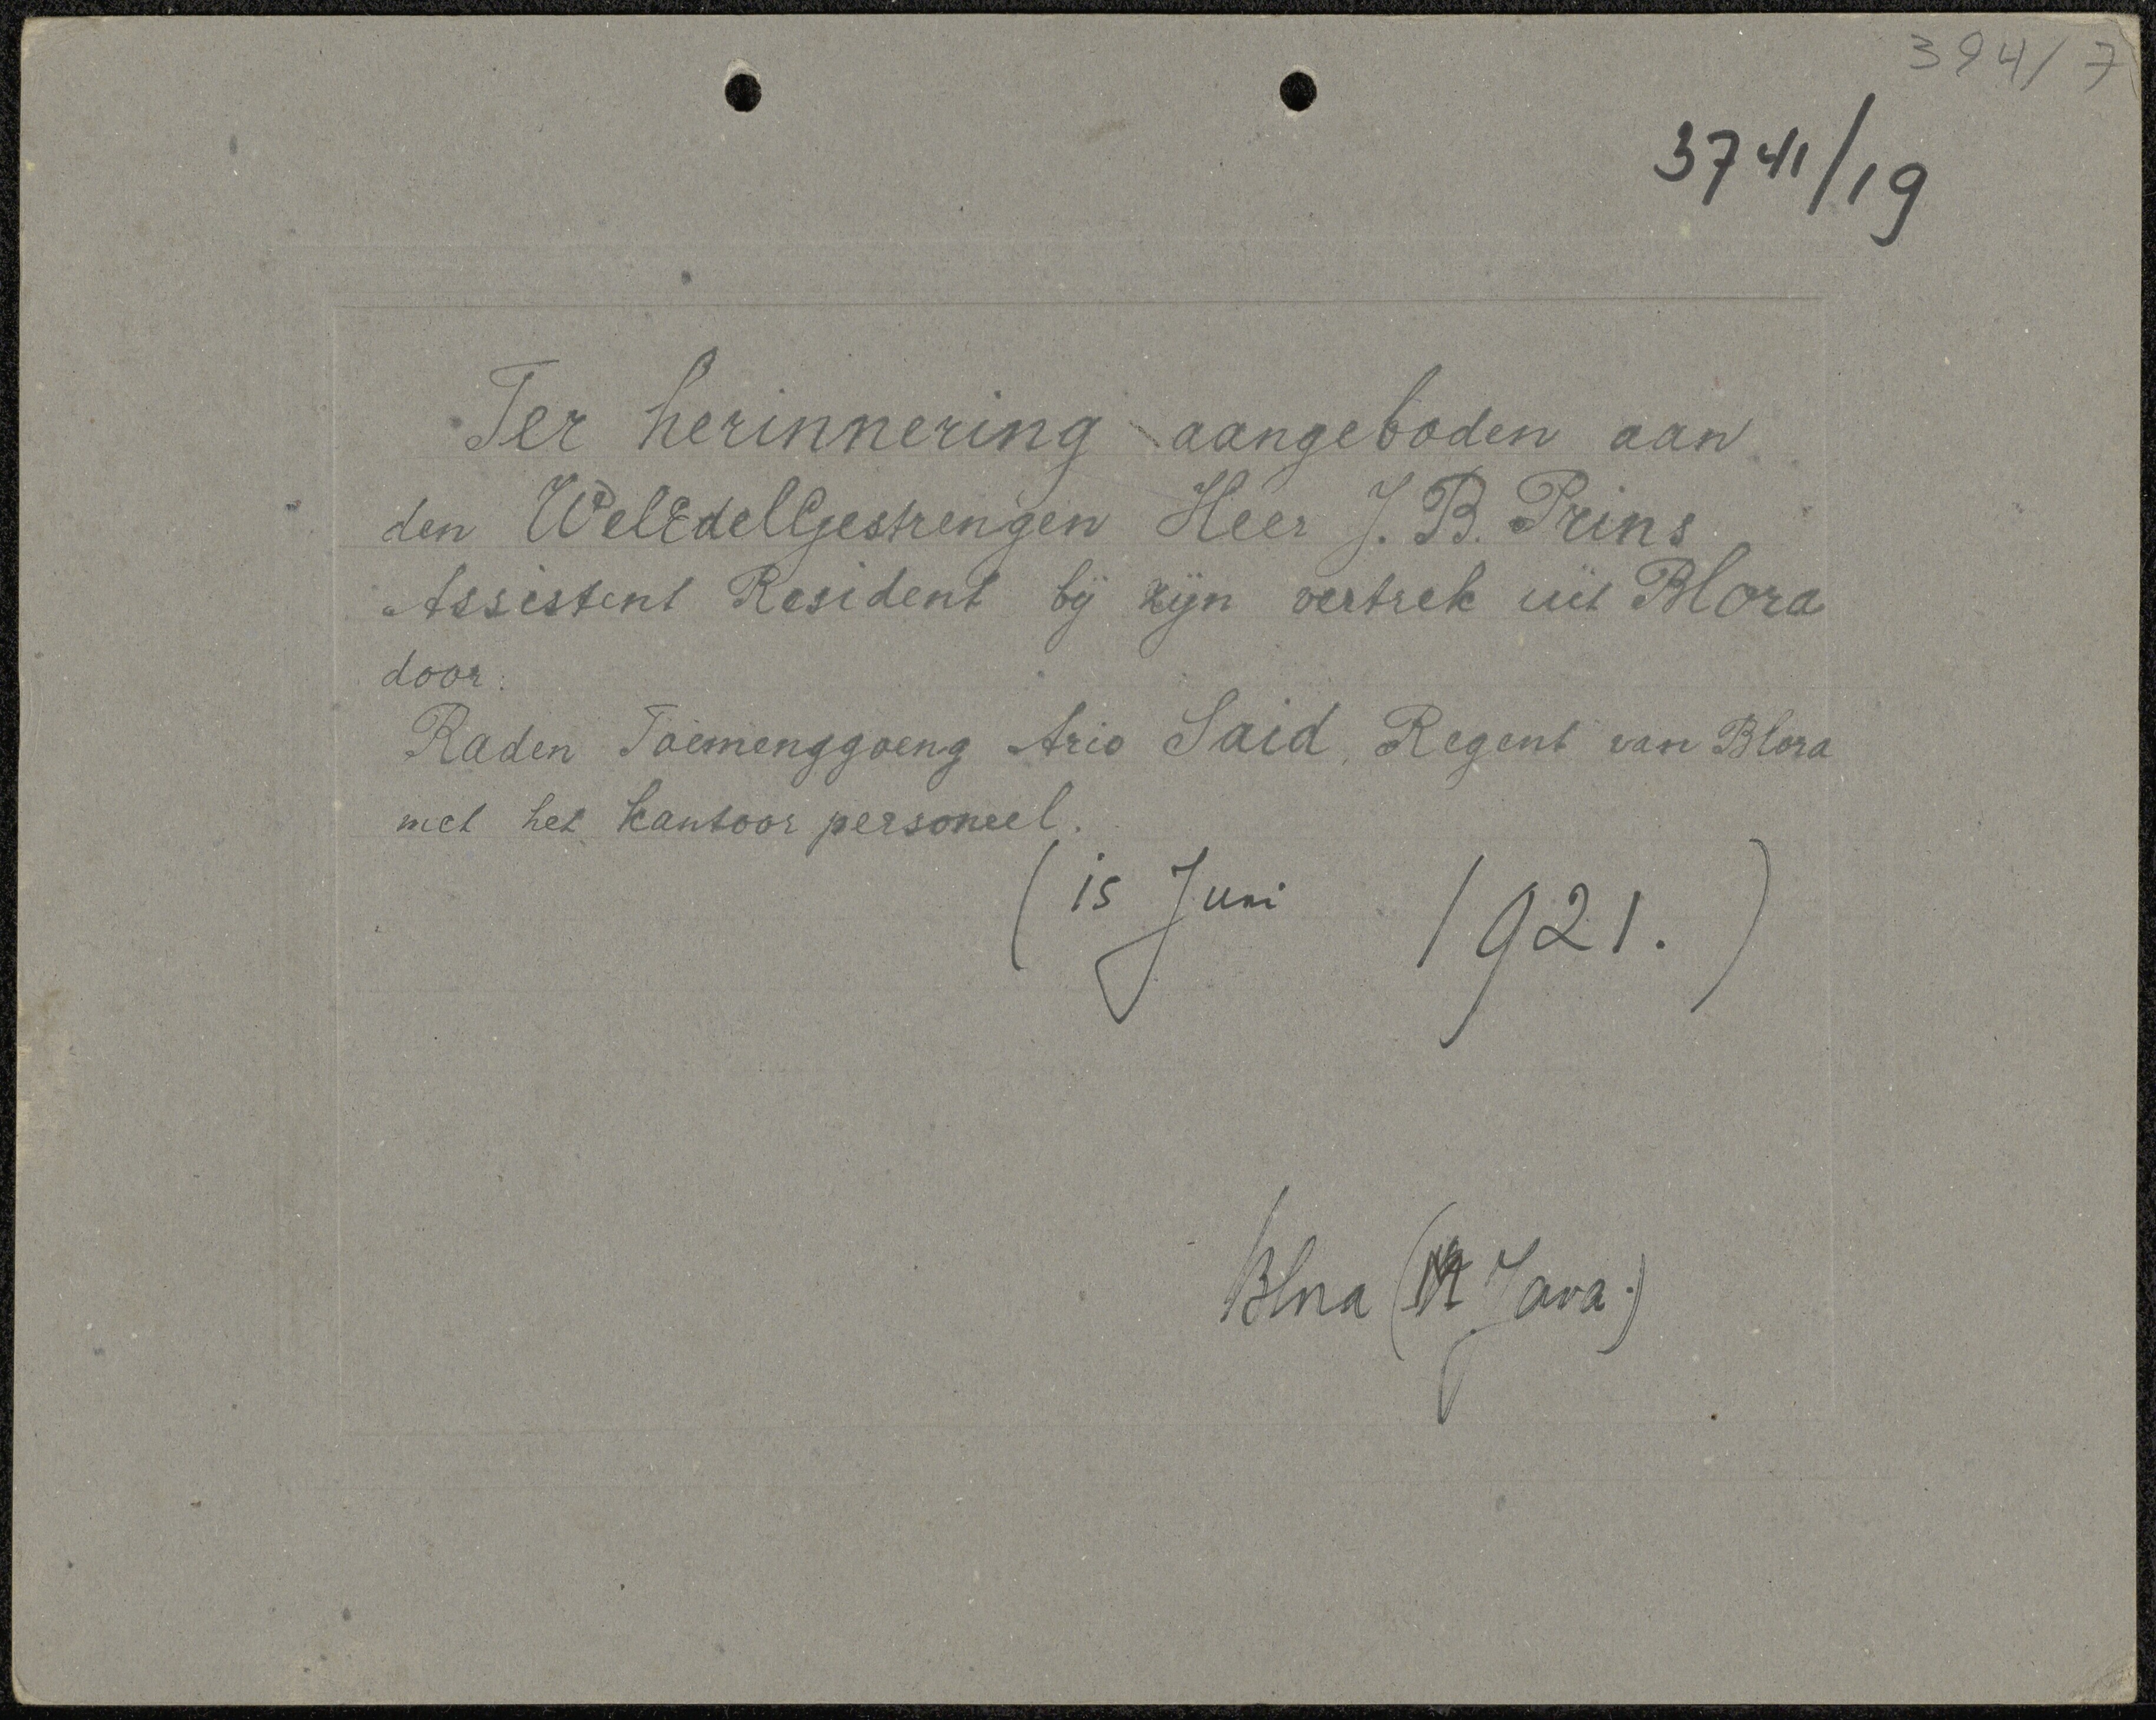 394/7
3741/19
Ter herinnering aangeboden aan
den WelEdelGestrengen Heer J. B. Prins
Assistent Resident bij zijn vertrek uit Blora
door.
Raden Toemenggoeng Ario Said, Regent van Blora
met het kantoor personeel.
(15 Juni 1921.)
Blora (M Java.)